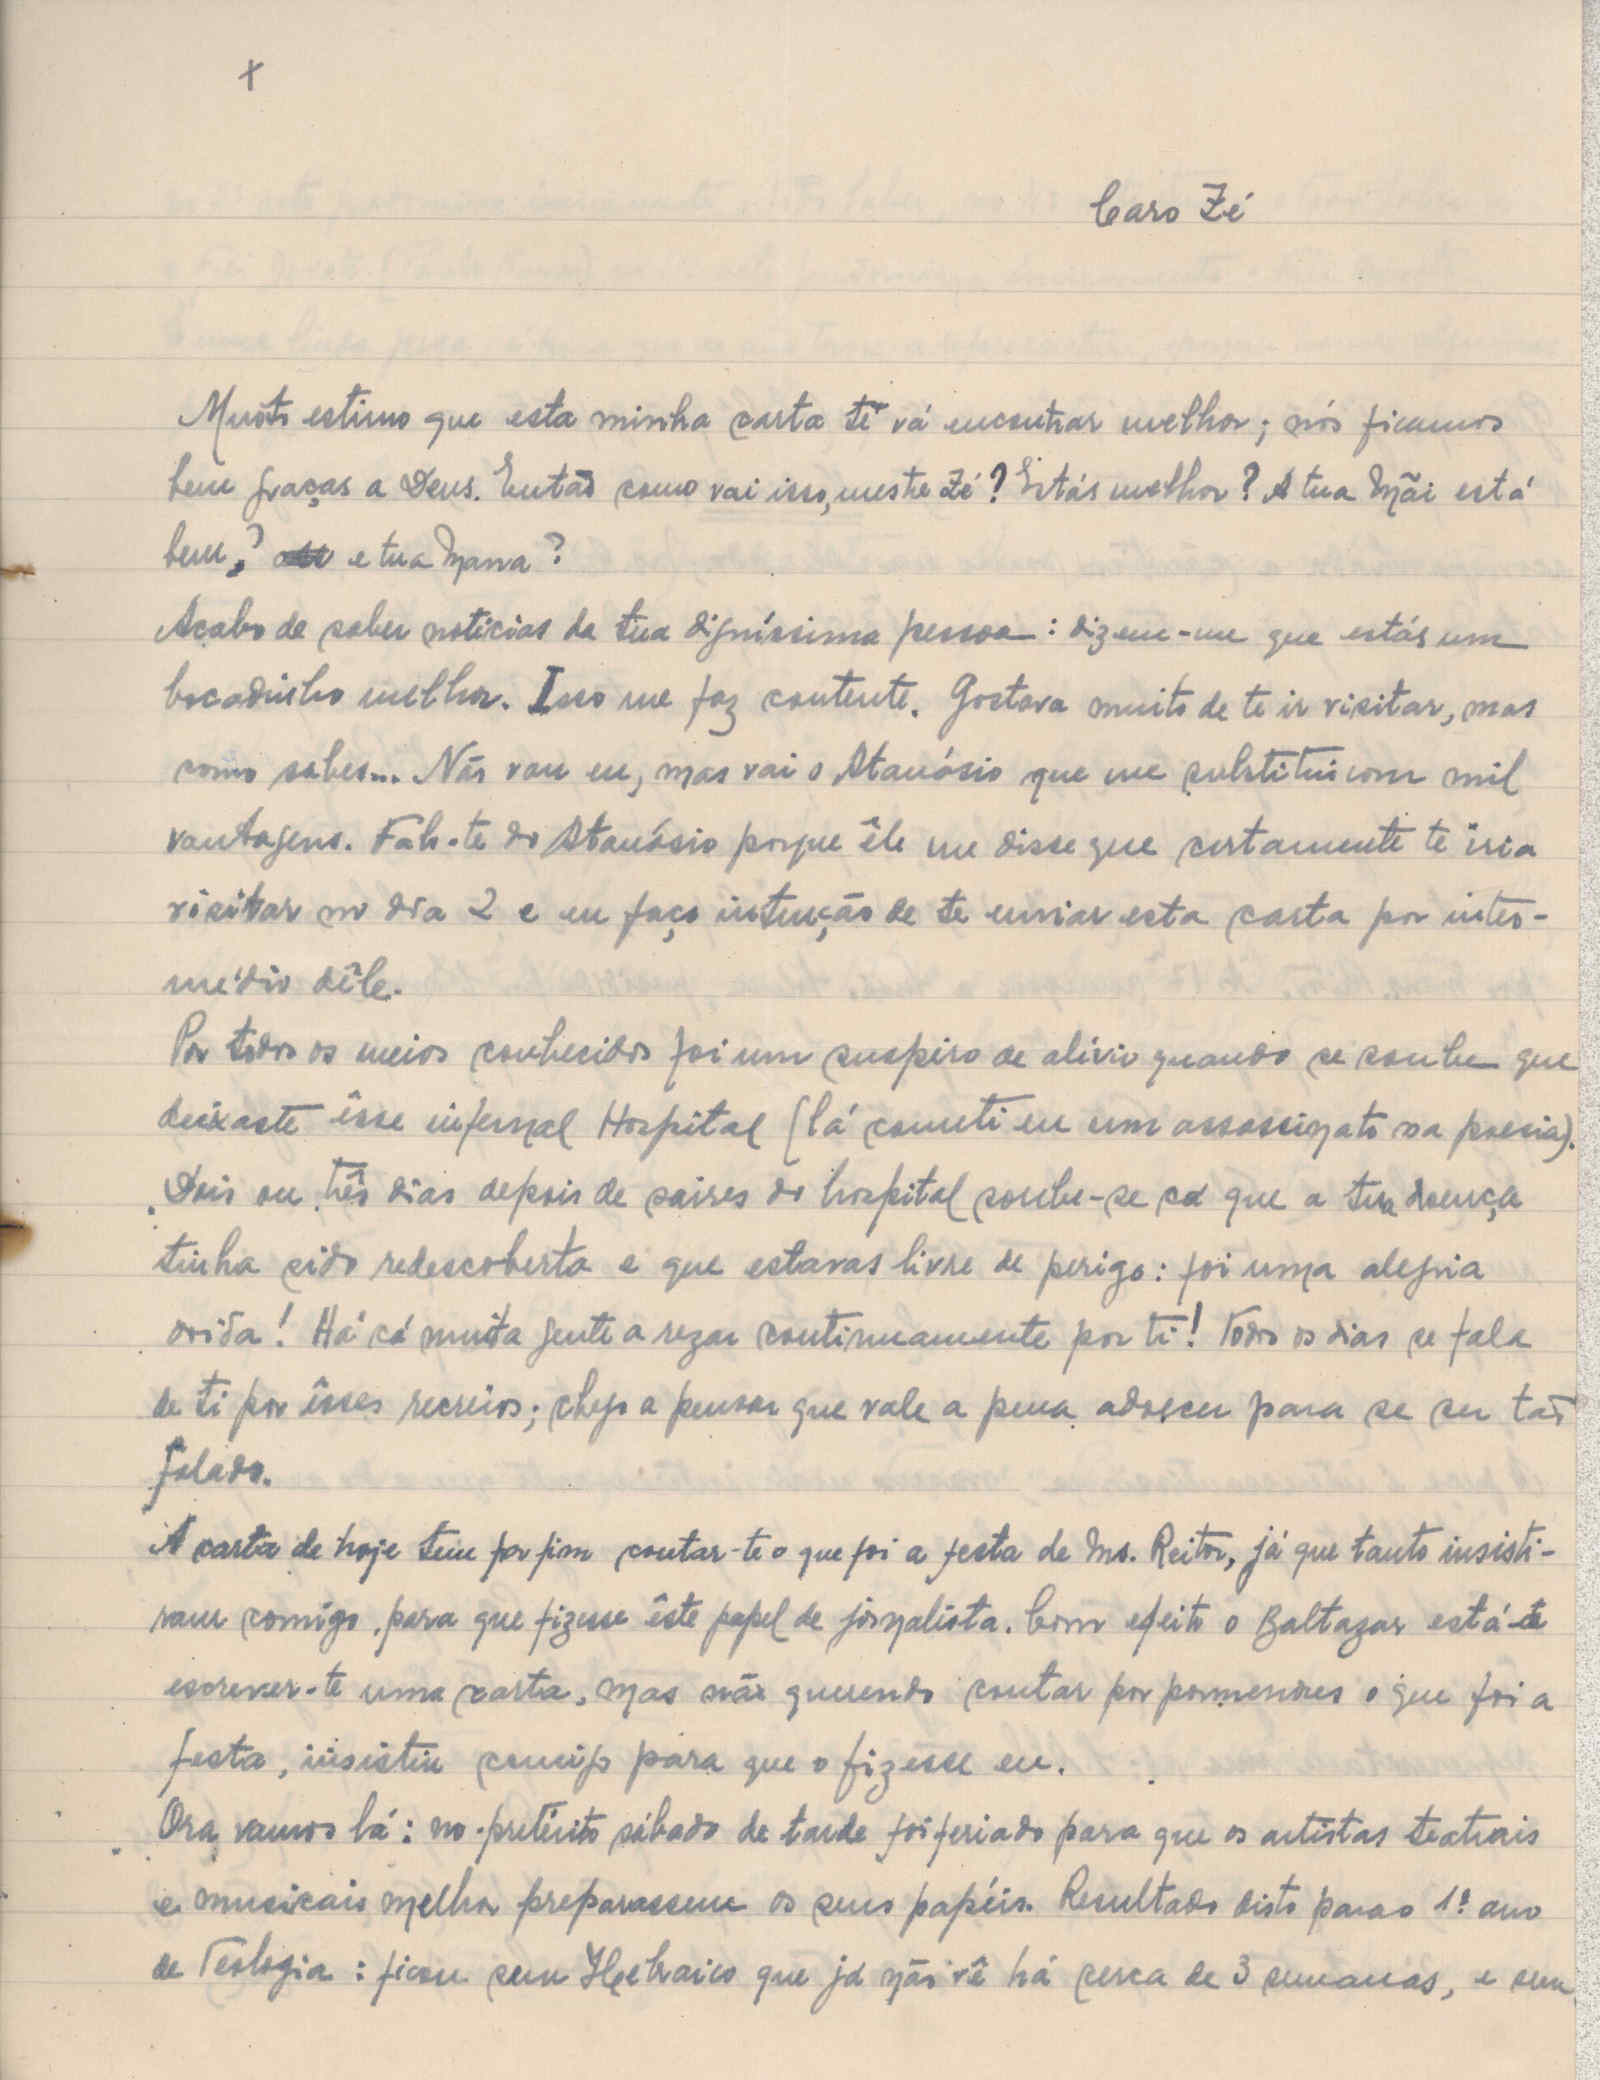 +
Caro Zé
Muito estimo que esta minha carta te vá encontrar melhor; nós ficamos
bem graças a Deus. Então como vai isso, mestre Zé? Estás melhor? A tua Mãi está
bem,? e tua Mana?
Acabo de saber notícias da tua digníssima pessoa: dizem-me que estás um
bocadinho melhor. Isso me faz contente. Gostava muito de te ir visitar, mas
como sabes... Não vou eu, mas vai o Atanásio que me substitui com mil
vantagens. Falo-te do Atanásio porque êle me disse que certamente te iria
visitar no dia 2 e eu faço intenção de te enviar esta carta por inter-
médio dêle.
Por todos os meios conhecidos foi um suspiro de alívio quando se soube que
deixaste êsse infernal Hospital (lá cometi eu um assassinato na poesia).
Dois ou três dias depois de saires do hospital soube-se cá que a tua doença
tinha sido redescoberta e que estavas livre de perigo: foi uma alegria
doida! Há cá muita gente a rezar continuamente por ti! Todos os dias se fala
de ti por êsses recreios; chego a pensar que vale a pena adoecer para se ser tão
falado.
A carta de hoje tem por fim contar-te o que foi a festa de Ms. Reitor, já que tanto insisti-
ram comigo, para que fizesse êste papel de jornalista. Com efeito o Baltazar está-te
escrever-te uma carta, mas não querendo contar por pormenores o que foi a
festa, insistiu comigo para que o fizesse eu.
Ora vamos lá: no pretérito sábado de tarde foi feriado para que os artistas teatrais
e musicais melhor preparassem os seus papéis. Resultado disto para o 1º ano
de Teologia: ficou sem Hebraico que já não vê há cerca de 3 semanas, e sem